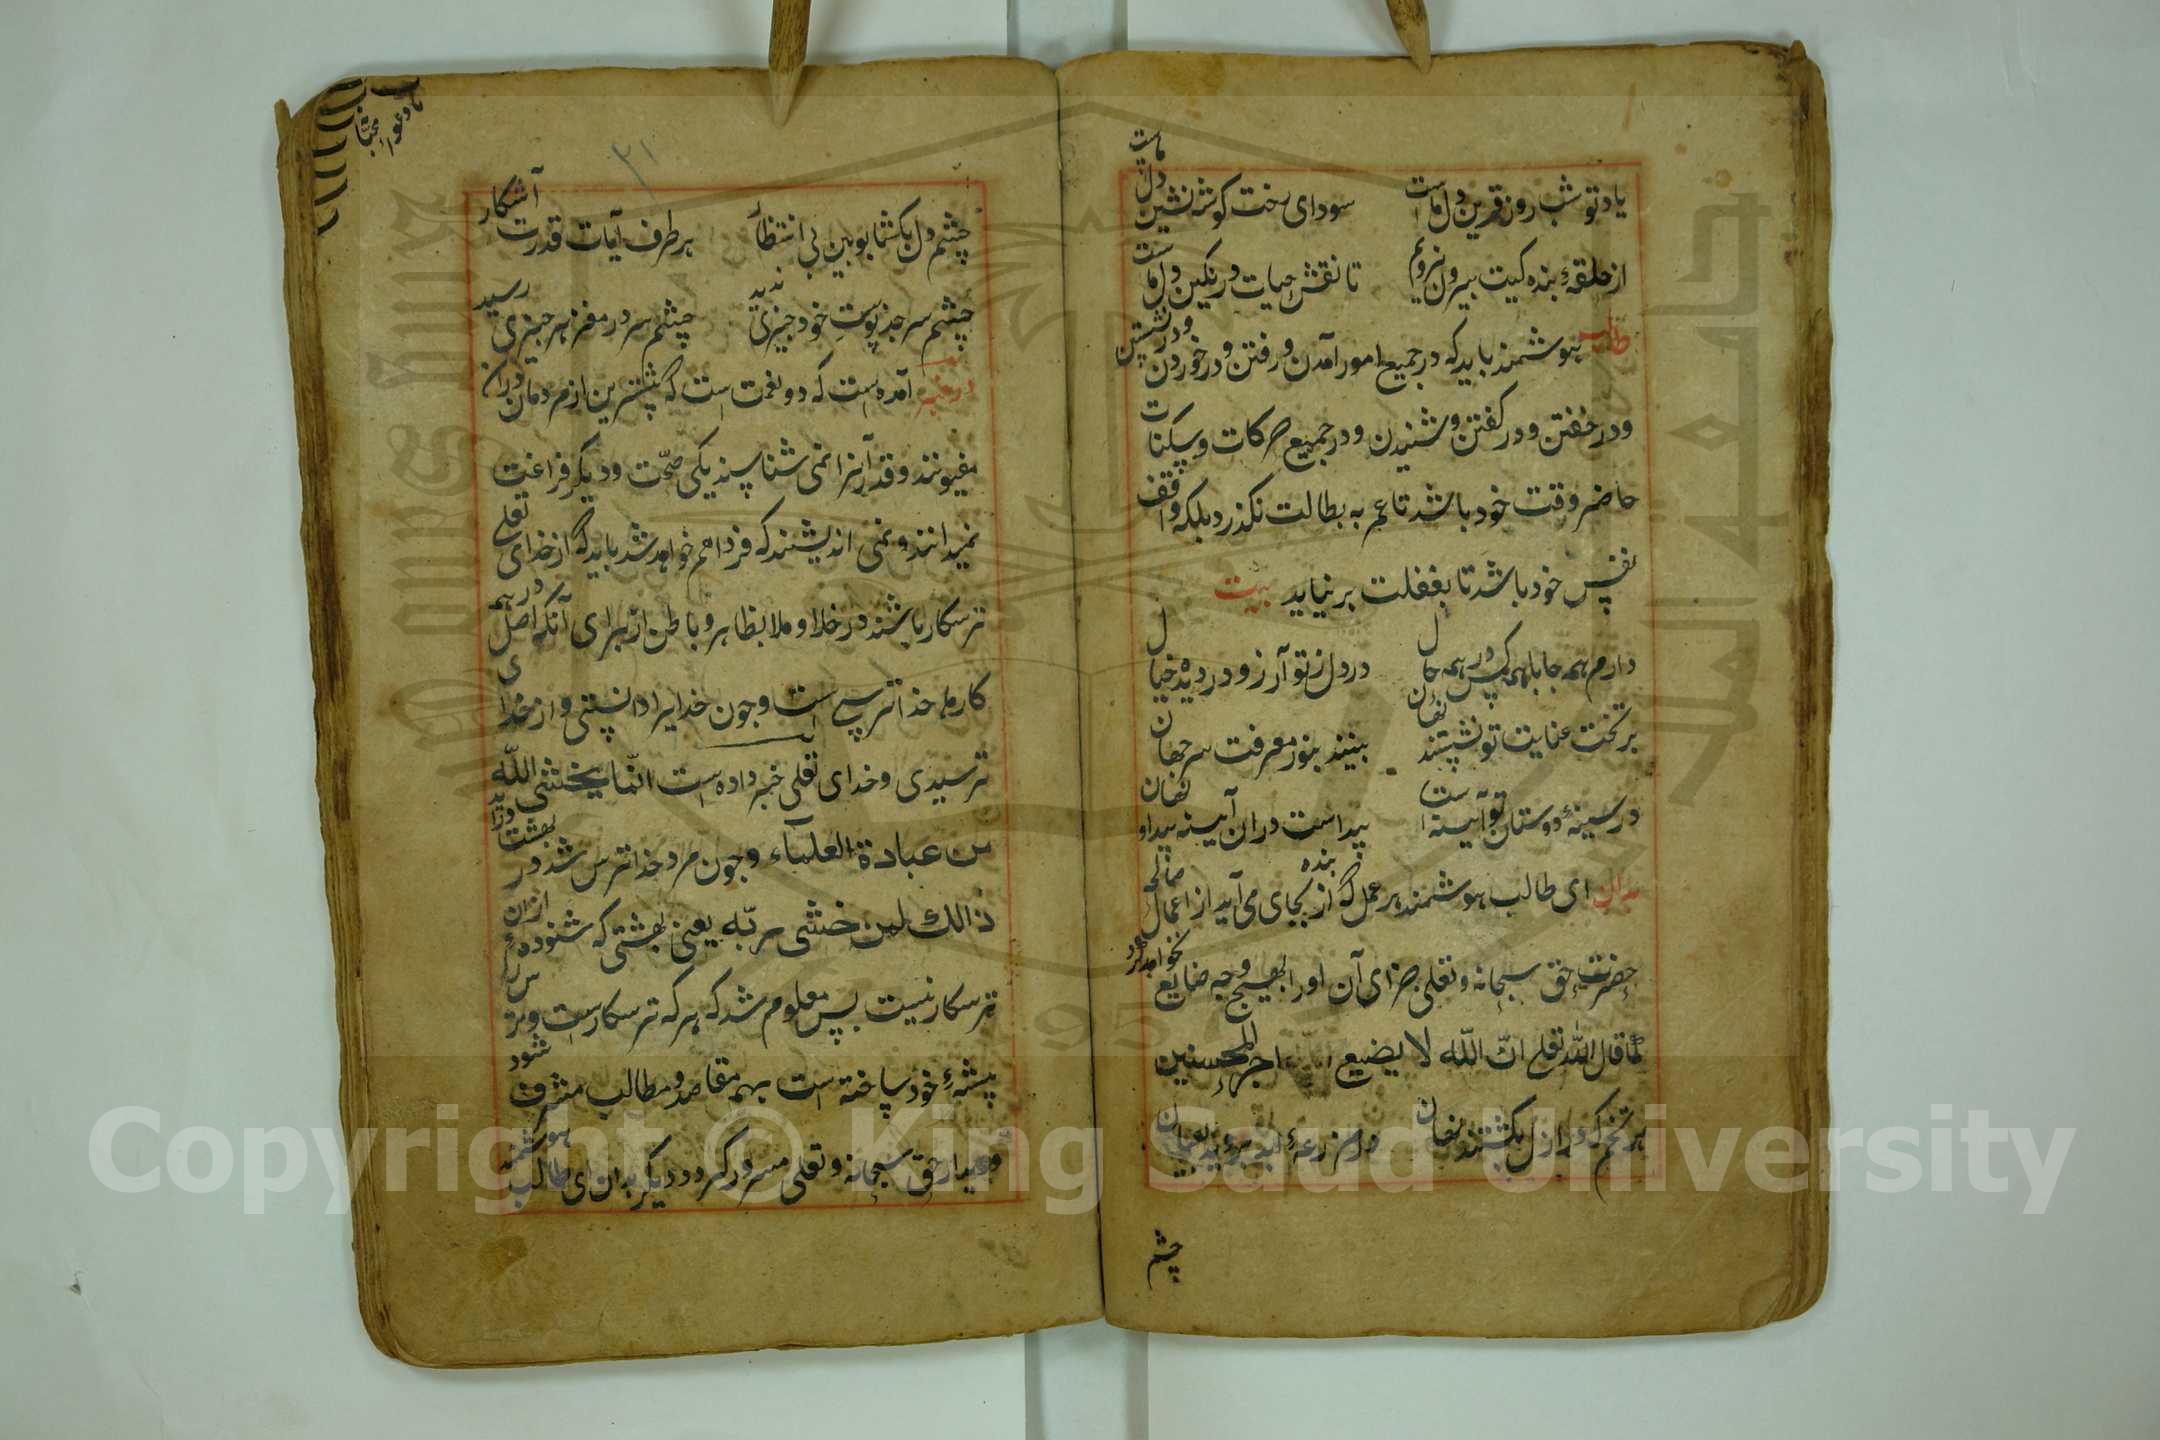 یاد تو شب روز قرین دل ماست سودای رخت کوشه نشین دل ماست
از حلقهٔ بنده کیت بیرون نرویم تا نقش حیات در نکین دل ماست
طالب هوشمند باید که در جمیع امور آمدن و رفتن و در خوردن و در نشستن
و در خفتن و در کفتن و شنیدن و در جمیع حرکات و سکنات
حاضر وقت خود باشد تا عمر به بطالت نکذرد بلکه واقف
نفس خود باشد تا بغفلت بر نیاید بیت
دارم همه جا با همه کس در همه حال در دل ز تو آرزو و در دیده خیال
بر تخت عنایت تو نشستند بینند بنور معرفت سر جهان
در سینهٔ دوستان تو آیینه است پیداست در ان آیینه پیدا و نهان
بدان ای طالب هوشمند هر عمل که از بنده بجای می آید از اعمال صالحه
حضرت حق سبحانه و تعلی جزای آن اورا بهیچ وجه ضایع نخواهد کرد
کما قال الله تعلی انّ الله لا یضیع اجر المحسنین
هر تخم که در ازل بکشتند نهان در مزرعهٔ ابد بروید بعیان
چشم
۲۱
چشم دل بکشا بوبین بی انتظار هر طرف آیات قدرت آشکار
چشم سر جز پوست خود چیزی ندید چشم سر در مغز هر چیزی رسید
در خبر آمده است که دو نعمت است که بیشترین از مردمان دران
مغبونند و قدر آنرا نمی شناسند یکی صحّت و دیکر فراغت
نمیدانند و نمی اندیشند که فردا هم خواهد شد باید که از خدای تعلی
ترسکار باشند در خلا و ملا بظاهر و باطن از برای آنکه اصل در همه
کارها خدا ترسی است و چون خدایرا دانستی و از خدا
ترسیدی و خدای تعلی خبر داده است انّما یخشی اللّه
من عبادة العلمآء و چون مرد خدا ترس شد در بهشت درآید
ذالك لمن خشی ربّه یعنی بهشتی که شنوده ازان
ترسکار نیست پس معلوم شد که هر که ترسکار است و ترس
پیشهٔ خود ساخته است بهمه مقاصد و مطالب مشرف شود
و بدیدار حق سبحانه و تعلی مسرور کردد و دیکر بدان ای طالب هوشمند
Copyright © King Saud University